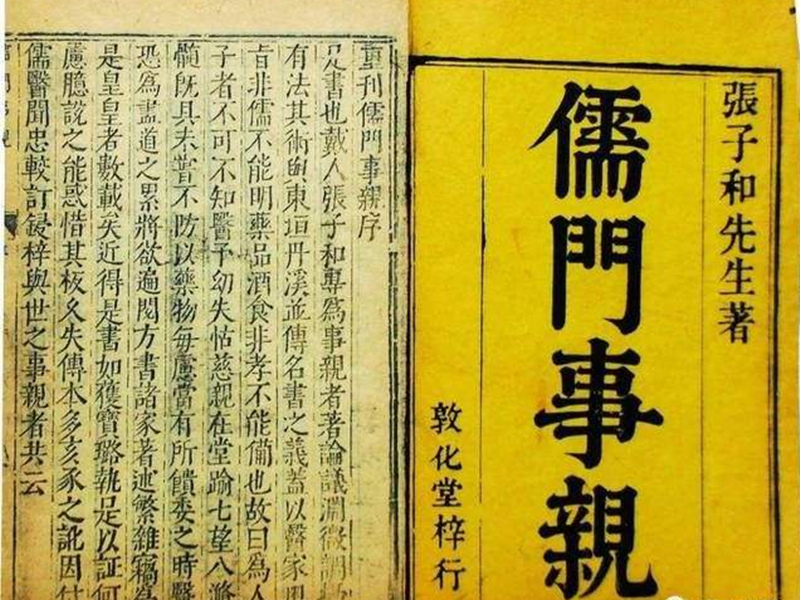 張子和先生著
儒門事親
敦化堂梓行
重刊儒門事親序
是書也戴人張子和專爲事親者著論議淵微調
有法其術與東垣丹溪並傳名書之義蓋以醫家
旨非儒不能明藥品酒食非孝不能備也故曰爲人
子者不可不知醫予幼失怙慈親在堂踰七望八滫
髓既具未嘗不防以藥物每慮當有所饋委之時醫
恐爲盡道之累將欲遍閱方書諸家著述繁雜竊爲
是皇皇者數載矣近得是書如獲寶璐執足以証何
慮臆說之能惑惜其板久失傳本多亥豕之訛因付
儒醫聞忠較訂鋟梓與世之事親者共云